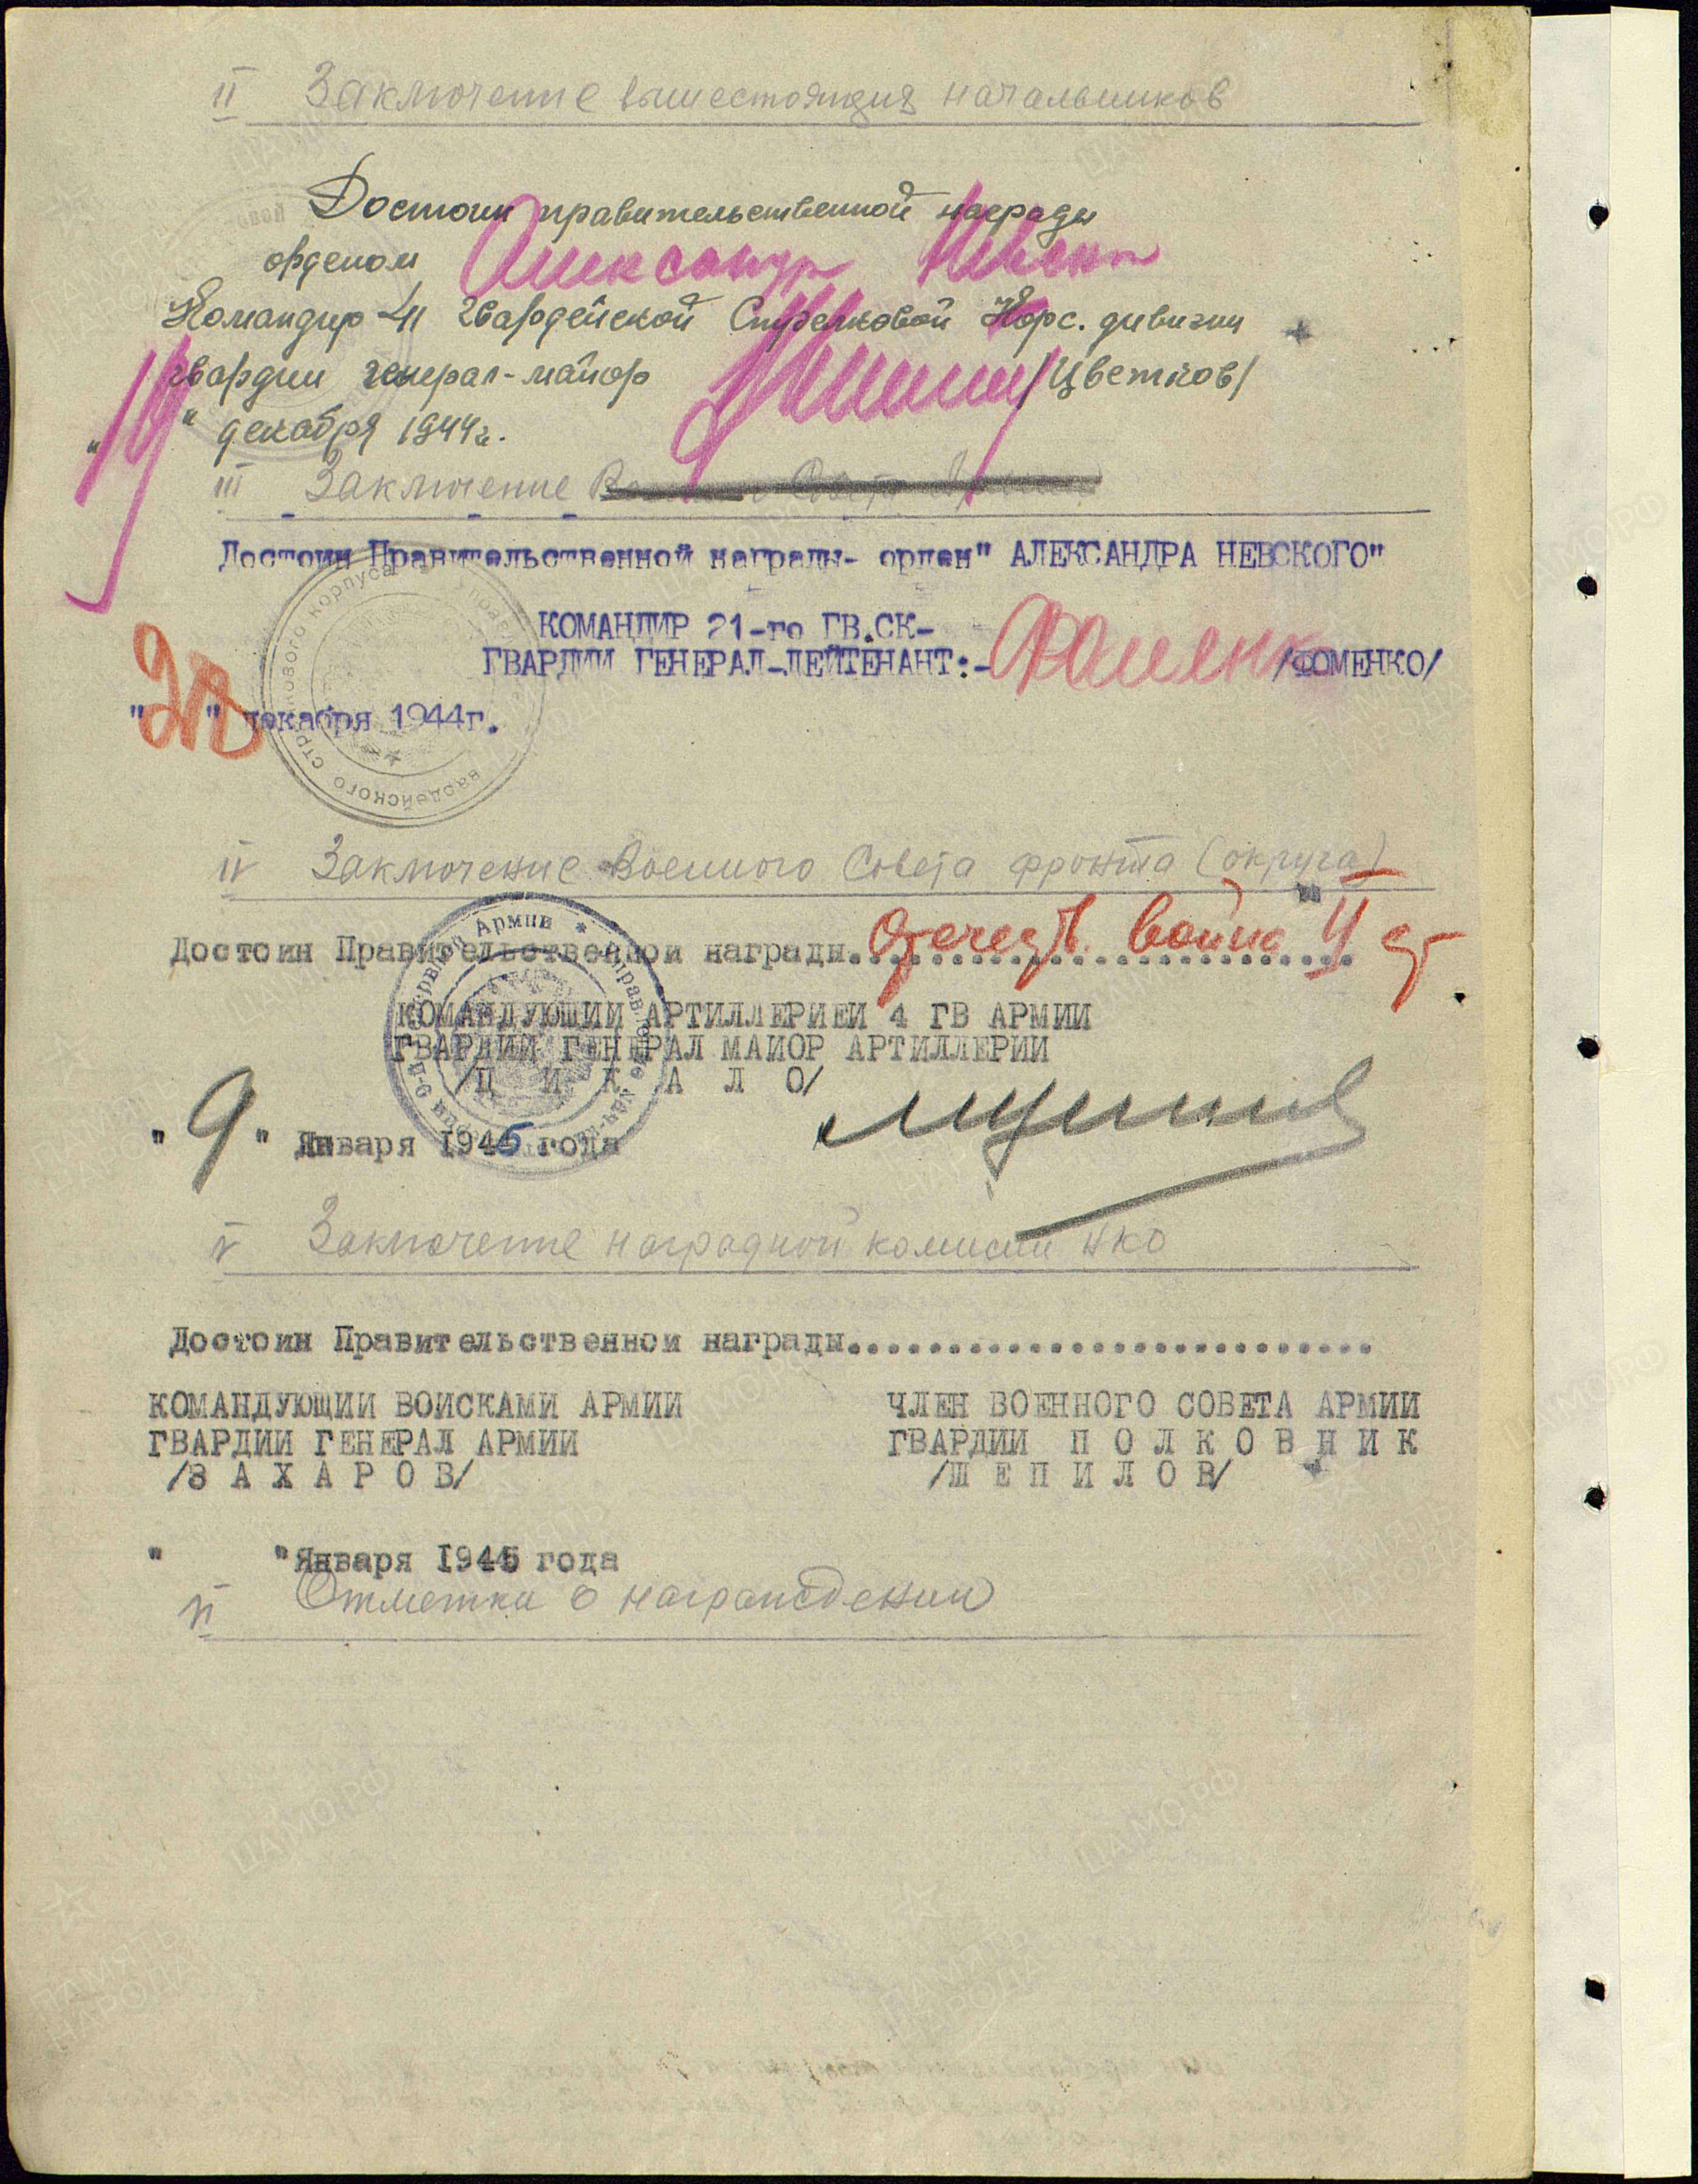 II Заключение вышестоящих начальников
Достоин правительственной награды
орденом Александр Невск
Командир 41 гвардейской Стрелковой Корс. дивизии
гвардии генерал-майор /Цветков/
"19" декабря 1944г.
III Заключение
Достоин Правительственной награды- орден" АЛЕКСАНДРА НЕВСКОГО"
КОМАНДИР 21-го ГВ.СК-
ГВАРДИИ ГЕНЕРАЛ-ЛЕЙТЕНАНТ:- /ФОМЕНКО/
"28" декабря 1944г.
IV Заключение Военного Совета фронта (округа)
Достоин Правительственной награды. Отечеств. войны II ст
КОМАНДУЮЩИИ АРТИЛЛЕРИЕИ 4 ГВ АРМИИ
ГВАРДИИ ГЕНЕРАЛ МАИОР АРТИЛЛЕРИИ
/Ц И К А Л О/
"9" Января 1945 года
V Заключение наградной комисии НКО
Достоин Правительственнои награды..............................
КОМАНДУЮЩИИ ВОИСКАМИ АРМИИ ЧЛЕН ВОЕННОГО СОВЕТА АРМИИ
ГВАРДИИ ГЕНЕРАЛ АРМИИ ГВАРДИИ П О Л К О В Н И К
/З А Х А Р О В/ /Ш Е П И Л О В/
" "Января 1945 года
VI Отметка о награждении